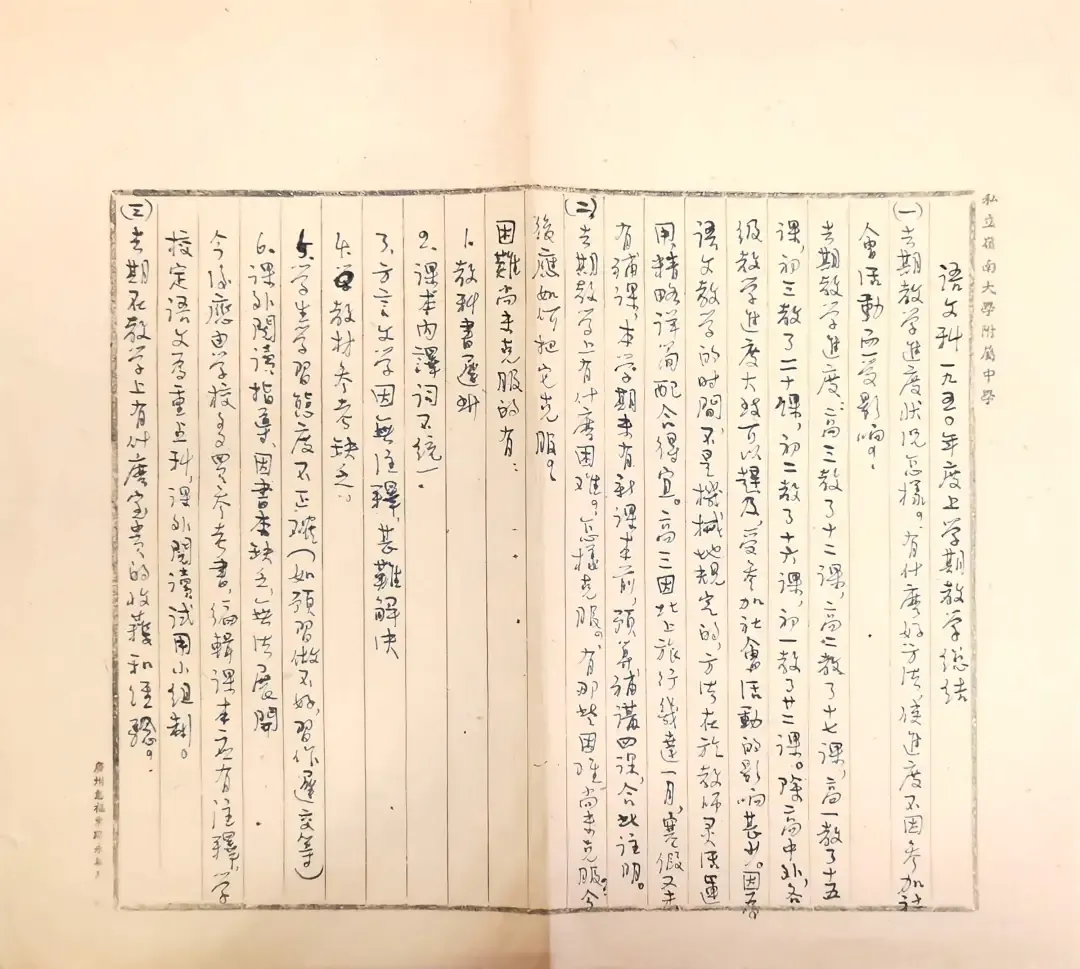 私立嶺南大學附屬中學
語文科一九五〇年度上学期教学總結
(一)去期教学進度狀況怎樣。有什麼好方法,使進度不因參加社
會活動而受影响。
去期教学進度:高三教了十二課,高二教了十七課,高一教了十五
課,初三教了二十課,初二教了十六課,初一教了廿二課。除高中外,各
級教学進度大致可以趕及,受參加社會活動的影响甚少。因為
語文教学的時間不是機械地規定的,方法在於教師灵活運
用,精略詳簡配合得宜。高三因北上旅行幾達一月,寒假又未
有補課,本学期未有新課本前,預算補講四課,合此注明。
(二)去期教学上有什麼困难。怎樣克服。有那些困难尚未克服?今
後應如何把它克服。
困難尚未克服的有:
1. 教科書遲
2. 課本內譯詞不統一.
3. 方言文学因無注釋,甚難解决
4. 教材參考缺乏.
5. 学生学習態度不正確(如預習做不好,習作遲交等)
6. 課外閱讀指導,因書本缺乏,無法展開
今後應由学校多買參考書,編輯課本应有注釋,学
校定語文為重点科,課外閱讀試用小組制。
(三)去期在教学上有什麼宝贵的收穫和經驗。